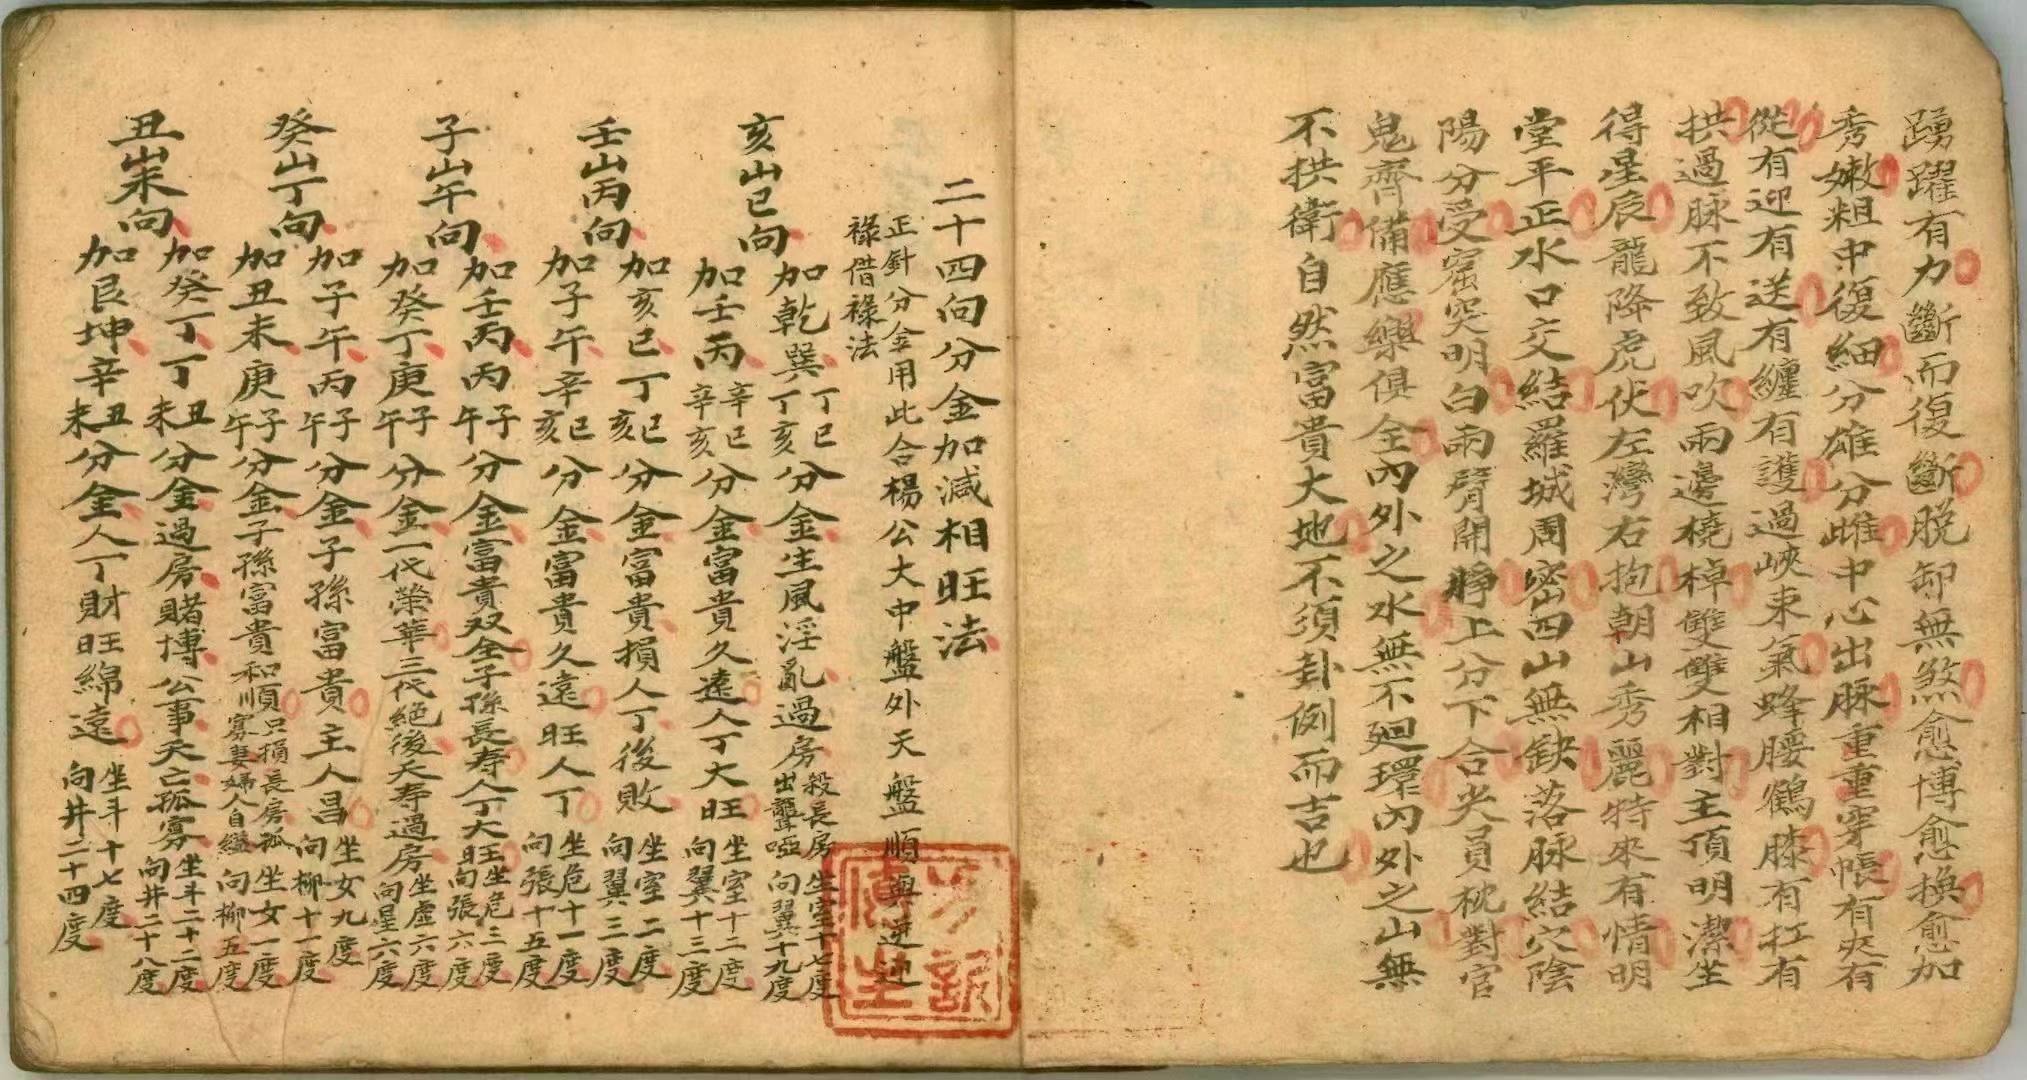 踴躍有力斷而復斷脫卸無煞愈博愈換愈加
秀嫩粗中復細分雄分雌中心出脉重重穿帳有夾有
從有迎有送有纏有護過峽束氣蜂腰鶴膝有扛有
拱過脉不致風吹兩邊橈棹雙雙相對主頂明潔坐
得星辰龍降虎伏左灣右抱朝山秀麗特來有情明
堂平正水口交結羅城周密四山無缺落脉結穴陰
陽分受窩突明白兩臂開睜上分下合尖員枕對官
鬼齊備應樂俱全內外之水無不廻環內外之山無
不拱衛自然富貴大地不須卦例而吉也
二十四向分金加減相旺法
正針分金用此合楊公大中盤外天盤順與逆迎
祿借祿法
亥山巳向
加乾巽丁巳丁亥分金生風淫亂過房殺長房出聾啞坐室十七度向翼十九度
加壬丙辛巳辛亥分金富貴久遠人丁大旺坐室十二度向翼十三度
壬山丙向
加亥巳丁巳亥分金富貴損人丁後敗坐室二度向翼三度
加子午辛巳亥分金富貴久遠旺人丁坐危十一度向張十五度
子山午向
加壬丙丙子午分金富貴双全子孫長寿人丁大旺坐危三度向張六度
加癸丁庚子午分金一代榮華三代絕後夭寿過房坐虛六度向星六度
癸山丁向
加子午丙子午分金子孫富貴主人昌坐女九度向柳十一度
加丑未庚子午分金子孫富貴和順只損長房孤寡妻婦人自縊坐女一度向柳五度
丑山未向
加癸丁丁丑未分金過房賭博公事夭亡孤寡坐斗二十二度向井二十八度
加艮坤辛丑未分金人丁財旺綿遠坐斗十七度向井二十四度